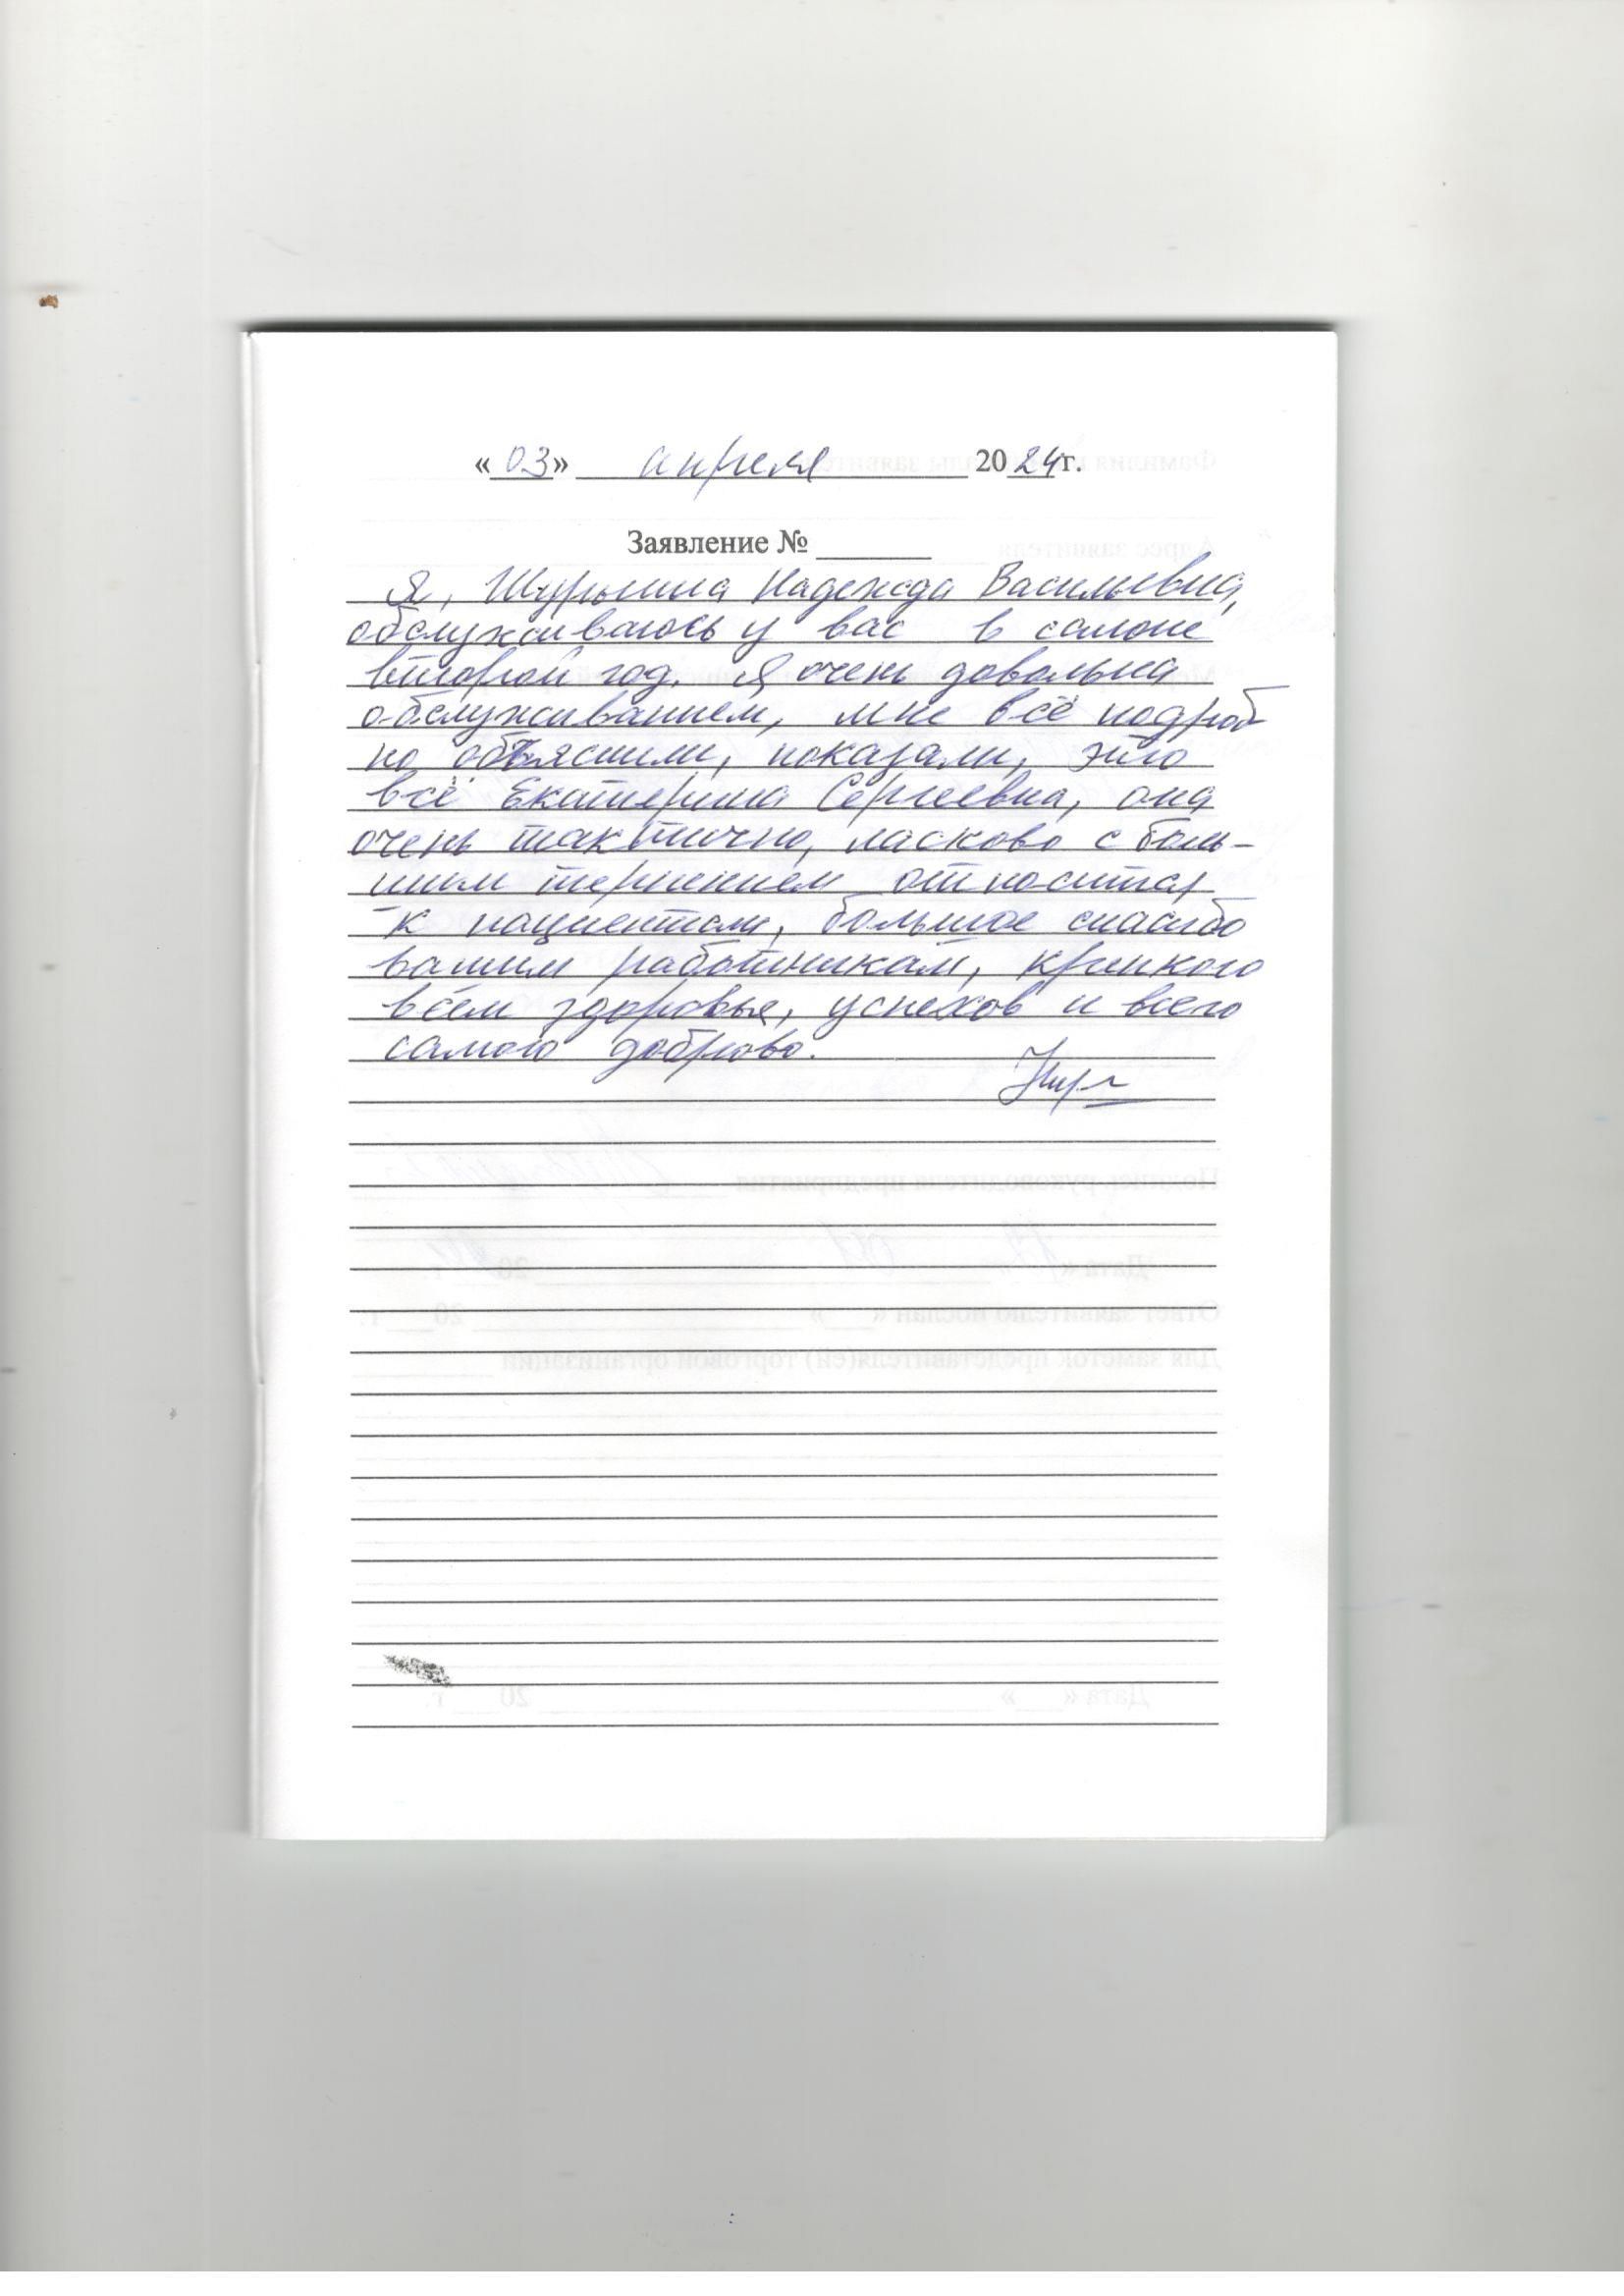 «03» апреля 2024г.
Заявление №
Я, Шурыгина Надежда Васильевна,
обслуживаюсь у вас в салоне
второй год. Я очень довольна
обслуживанием, мне всё подроб
но объяснили, показали, это
всё Екатерина Сергеевна, она
очень тактично, ласково с боль-
шим терпением относитя
к пациентам, большое спасибо
вашим работникам, крепкого
всем здоровья, успехов и всего
самого доброво.